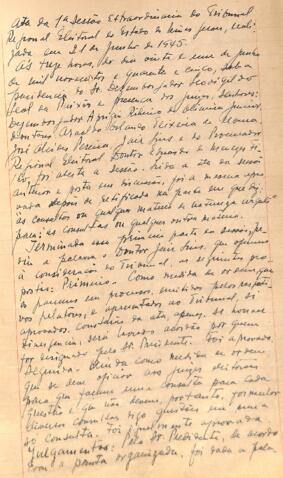 Ata da 1ª Sessão Extraordinária do Tribunal
Regional Eleitoral do Estado de Minas Gerais, reali-
zada em 21 de Junho de 1945.
Às treze horas, do dia vinte e um de junho
de mil novecentos e quarenta e cinco, sob a
presidência do Sr. Desembargador Leovigildo
Leal da Paixão e presença dos juízes, senhores:
Desembargador Ribeiro de Oliveira
Doutores Arnaldo Teixeira de Moura
José Alcides Pereira, e do Procurador
Regional Eleitoral Doutor Edmundo de Menezes
foi aberta a sessão. Lida a ata da sessão
anterior e posta em discussão, foi a mesma apro-
vada depois de retificada na parte em que diz:
"às consultas ou qualquer matéria de natureza urgente"
para: às consultas ou qualquer outra matéria.
Terminada essa primeira parte da sessão, pe-
diu a palavra o Doutor que ofereceu
à consideração do Tribunal, as seguintes pro-
postas: Primeira. Como medida de ordem que
os pareceres em processos, emitidos pelos respecti-
vos relatores, e apresentados ao Tribunal, se
aprovados, constarão da ata, apenas, se houver
divergência, será lavrado acórdão por quem
for designado pelo Sr. Presidente. Foi aprovada.
Segunda. Ainda como medida de ordem
que se deve oficiar aos juízes eleitorais
para que façam uma consulta para cada
questão e que não devem, portanto, formular
diversas consultas digo questões em uma
só consulta. Foi igualmente aprovada.
Julgamentos: Pelo Sr. Presidente, de acordo
com a pauta organizada, foi dada a pala-